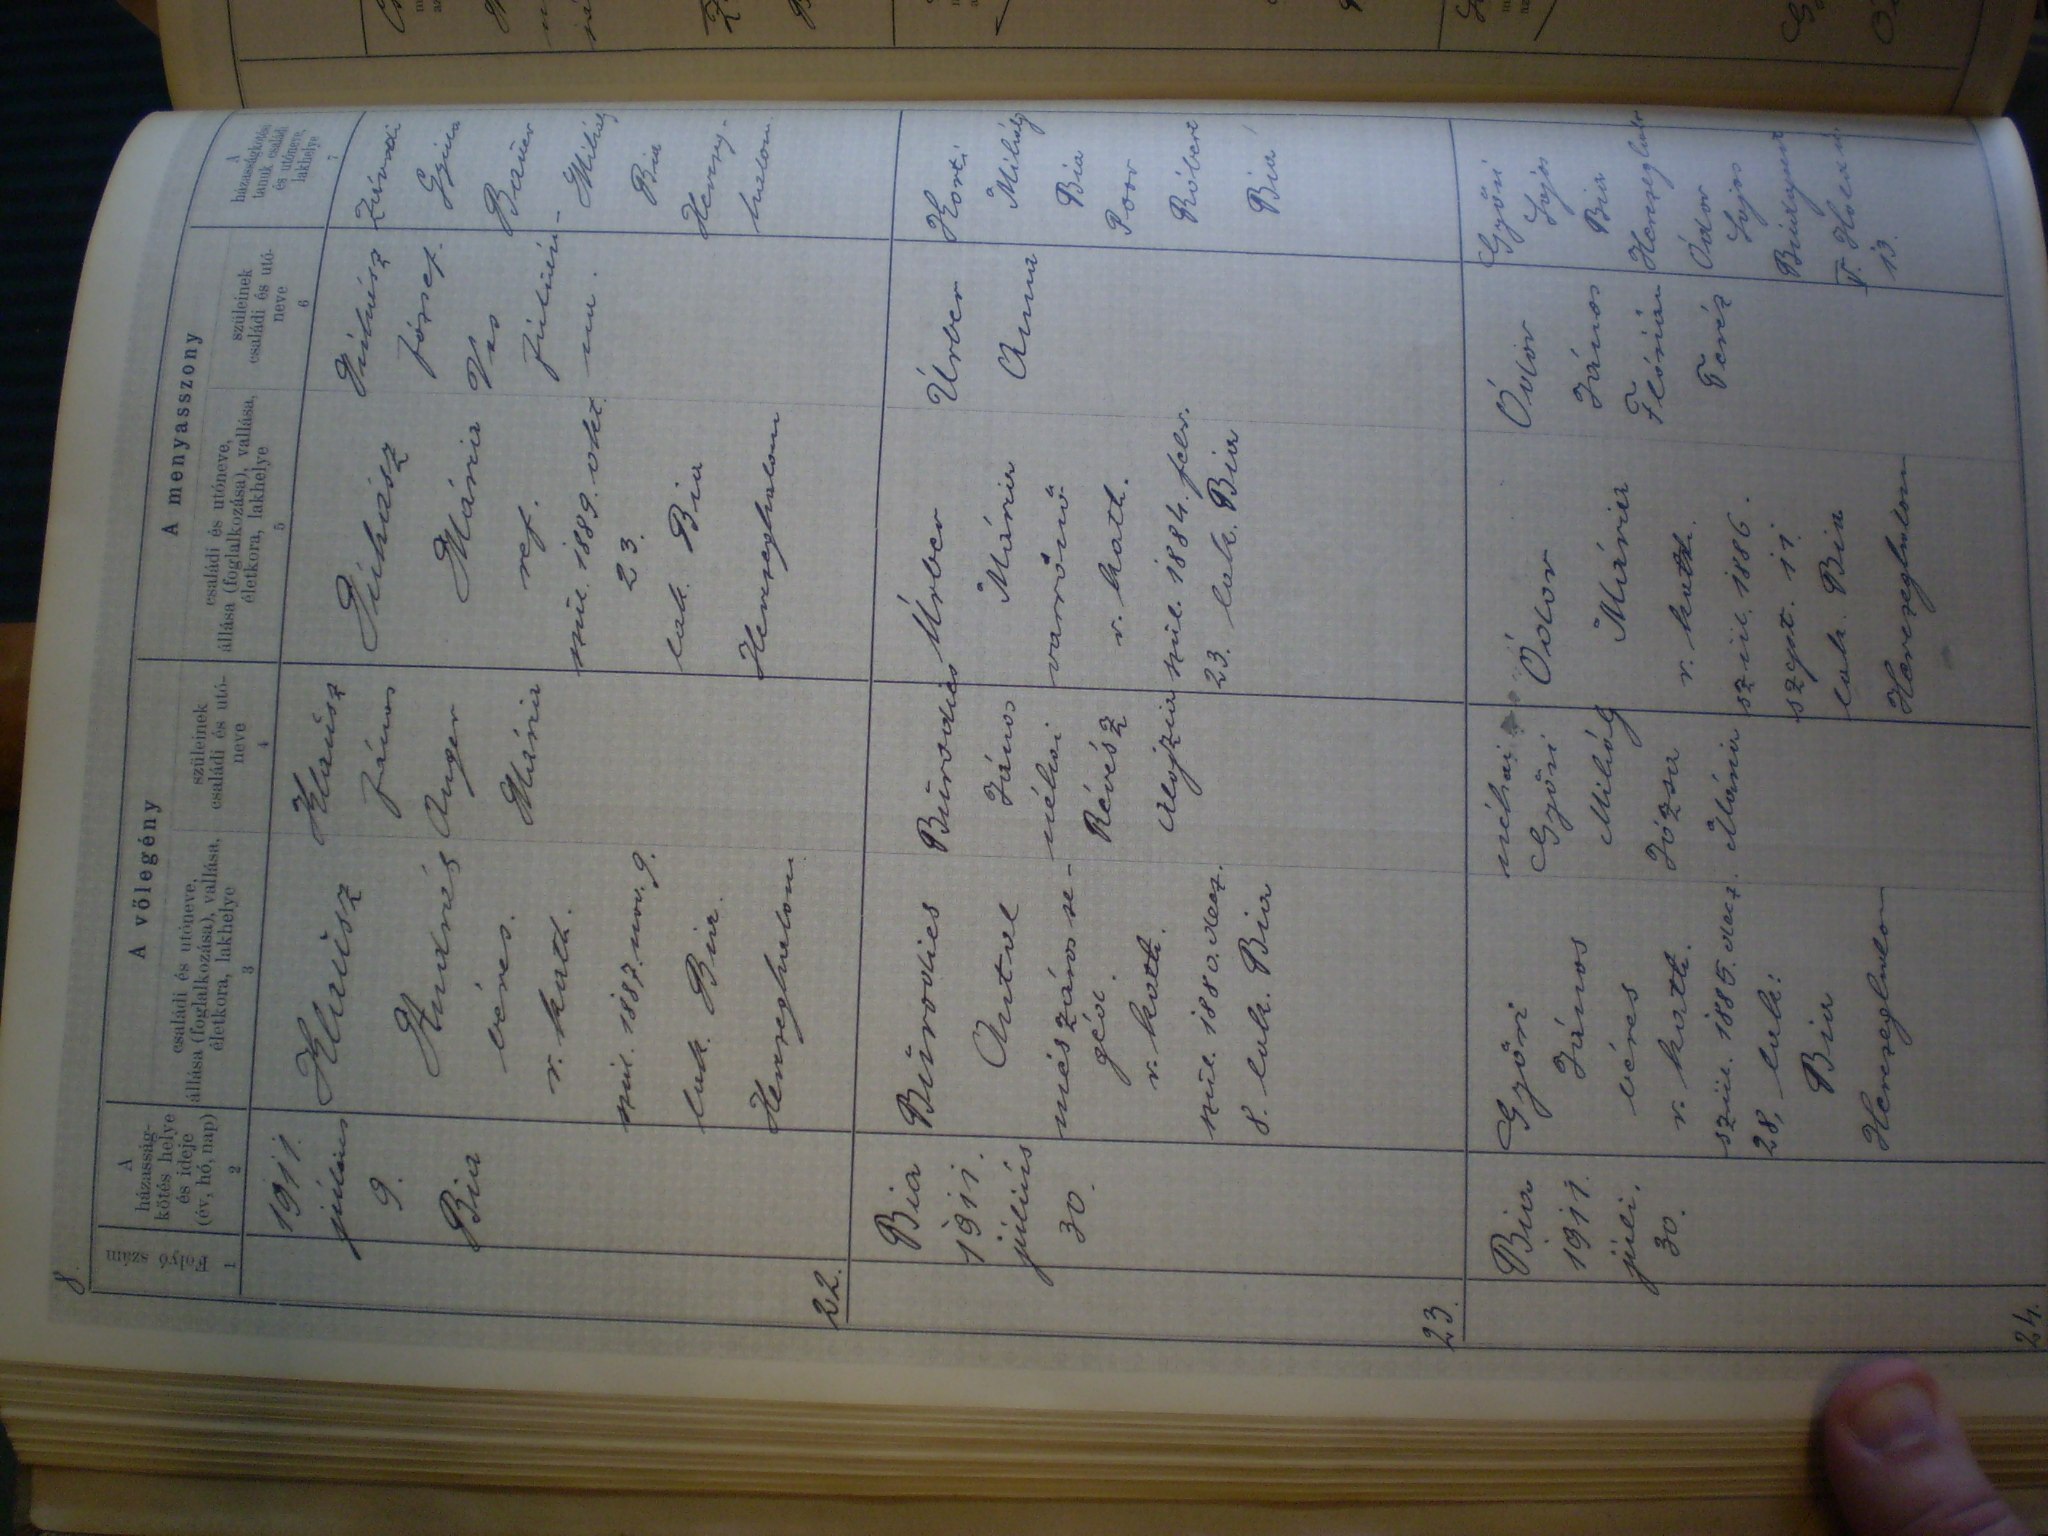 8.
Folyó szám
1
A
házasság-
kötés helye
és ideje
(év, hó, nap)
2
A vőlegény
családi és utóneve,
állása (foglalkozása), vallása,
életkora, lakhelye
3
szüleinek
családi és utó-
neve
4
A menyasszony
családi és utóneve,
állása (foglalkozása), vallása,
életkora, lakhelye
5
szüleinek
családi és utó-
neve
6
A
házasságkötési
tanuk családi
és utóneve,
lakhelye
7
22.
1911.
július
9.
Bia
Klausz
András
béres.
r. kath.
szül. 1887. nov. 9.
lak. Bia.
Herceghalom.
Klausz
János
Anger
Mária
Juhász
Mária
ref.
szül. 1889. okt.
23.
lak. Bia
Herceghalom
Juhász
József.
Vas
Julián-
na.
Gyula
Bauer
Mihály
Bia
Herceg-
halom.
23.
Bia
1911.
július
30.
Burodics
Antal
mészáros se-
géd.
r. kath.
szül. 1880. dec.
8. lak. Bia
Burodics
János
néhai
Révész
Alojzia
Úrber
Mária
varrónő
r. kath.
szül. 1884. febr.
23. lak. Bia
Úrber
Anna
Korti
Mihály
Bia
Poor
Róbert
Bia
24.
Bia
1911.
júli.
30.
Győri
János
béres
r. kath.
szül. 1885. decz.
28, lak:
Bia
Herceghalom
néhai
Győri
Mihály
Józsa
Mária
Ódor
Mária
r. kath.
szül. 1886.
szept. 11.
lak. Bia
Herceghalom
Ódor
János
Flórián
Teréz
Győri
Lajos
Bia
Herceghalom
Ódor
Lajos
Budapest
13.